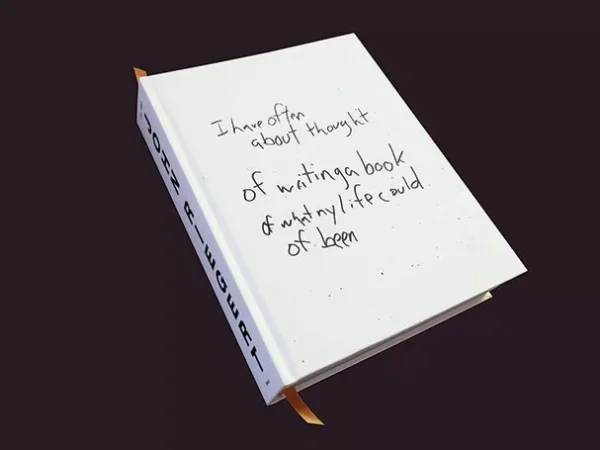 I have often
about thought
of writing a book
of what my life could
of been
JOHN RIEGERT